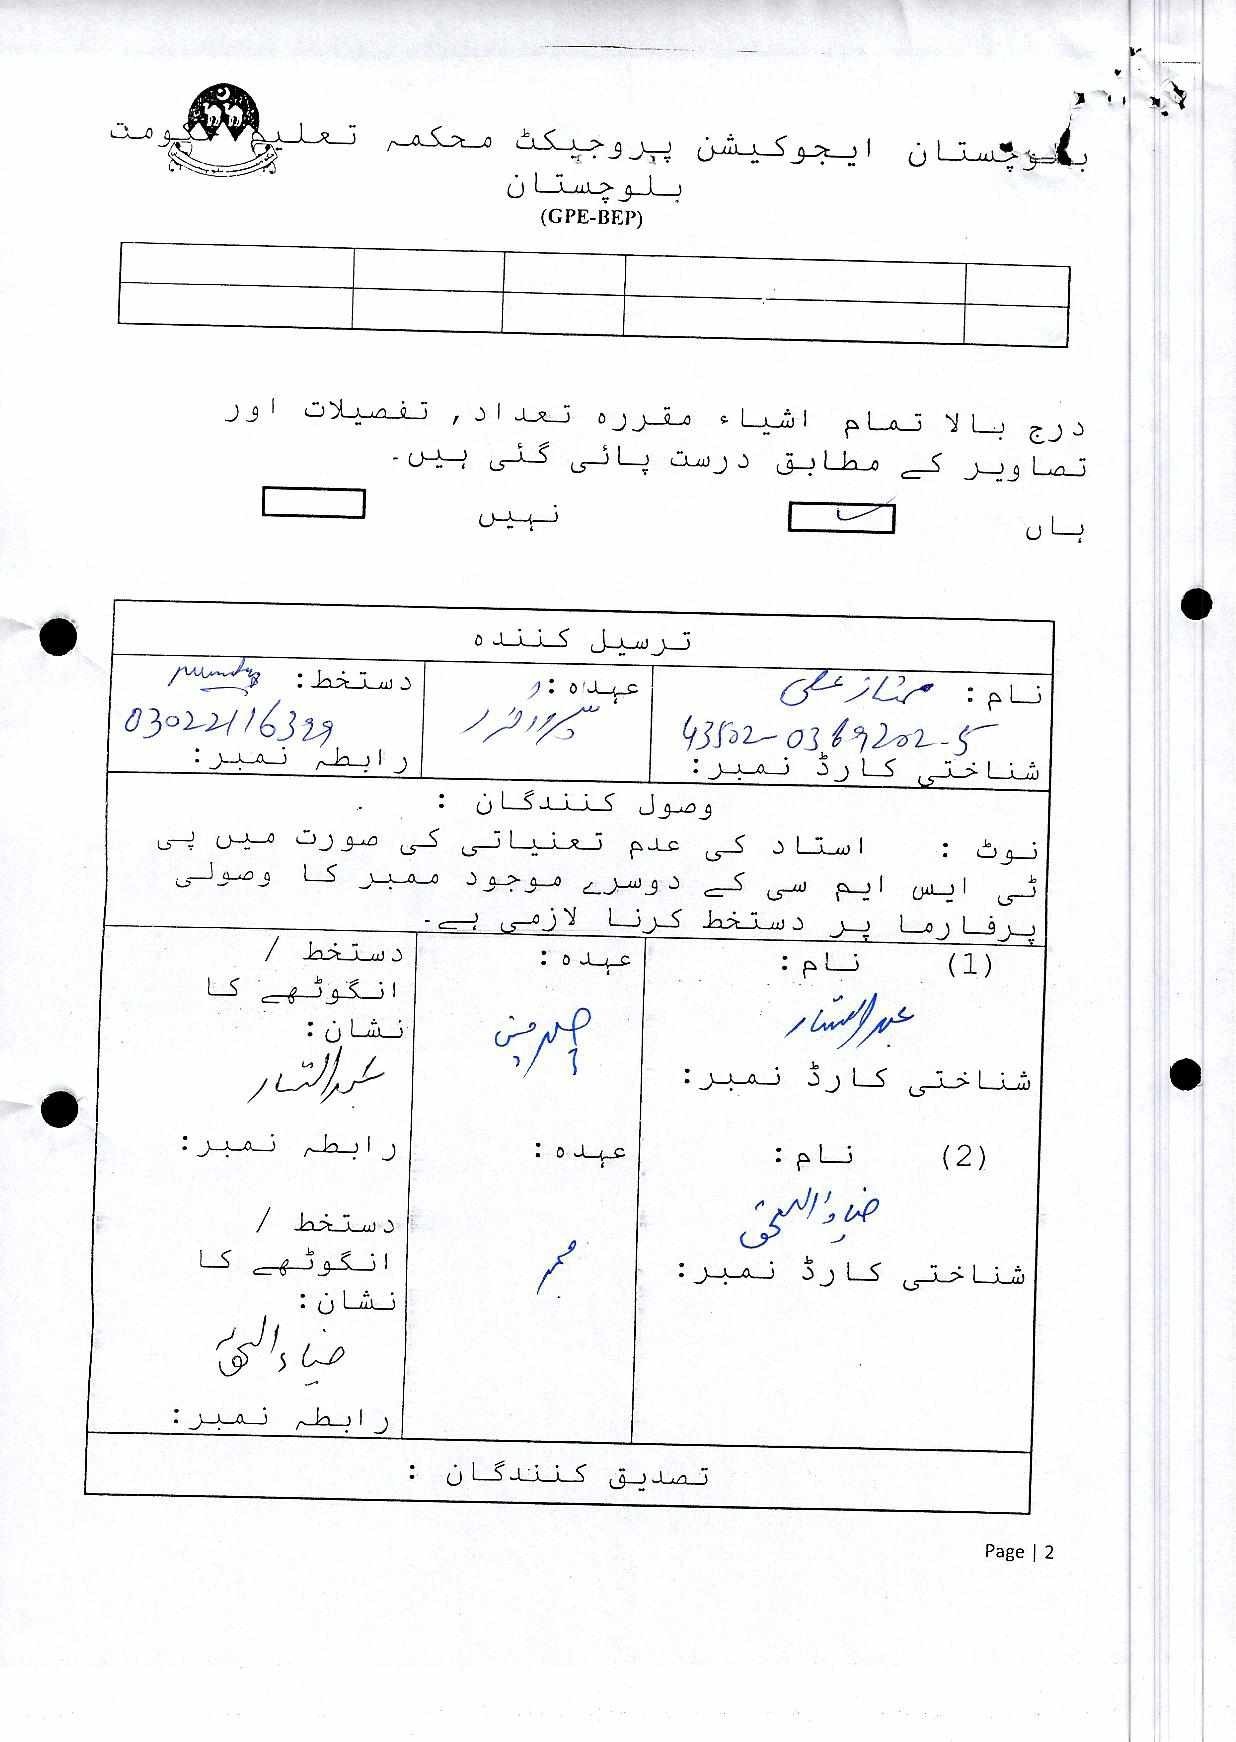 بلوچستان ایجوکیشن پروجیکٹ محکمہ تعلیم حکومت
بلوچستان
(GPE-BEP)
درج بالا تمام اشیاء مقررہ تعداد, تفصیلات اور
تصاویر کے مطابق درست پائی گئی ہیں۔
ہاں نہیں
ترسیل کنندہ
نام: ممتاز علی عہدہ: دستخط:
43502-0369202-5 03022116399
شناختی کارڈ نمبر: رابطہ نمبر:
وصول کنندگان :
نوٹ : استاد کی عدم تعنیاتی کی صورت میں پی
ٹی ایس ایم سی کے دوسرے موجود ممبر کا وصولی
پرفارما پر دستخط کرنا لازمی ہے۔
(1) نام: عہدہ: دستخط /
انگوٹھے کا
نشان:
عبدالستار چیرمین عبدالستار
شناختی کارڈ نمبر:
رابطہ نمبر:
(2) نام: عہدہ:
ضیاءالحق ممبر
دستخط /
انگوٹھے کا
نشان:
شناختی کارڈ نمبر:
ضیاءالحق
رابطہ نمبر:
تصدیق کنندگان :
Page | 2